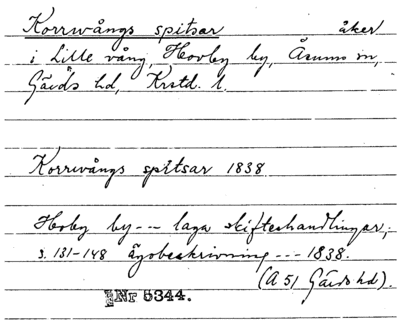 Korrvångs spitsar åker
i Lille vång, Hovby by, Åsums sn,
Gärds hd, Krstd. l.
Korrvångs spitsar 1838
Hovby by --- laga skifteshandlingar,
s. 131-148 ägobeskrivning --- 1838.
(A 51 Gärds hd).
Nr 5344.